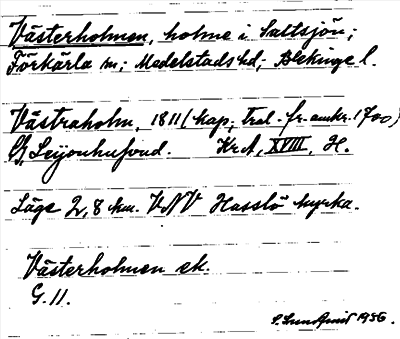 Västerholmen, holme i Saltsjön;
Förkärla sn; Medelstads hd; Blekinge l.
Västraholm, 1811 (kap, tral. fr. omkr. 1700)
G, Leijonhufvud. KrA, XVIII, H.
Läge 2,8 km. VNV Hasslö kyrka.
Västerholmen ek.
G. 11.
1956.